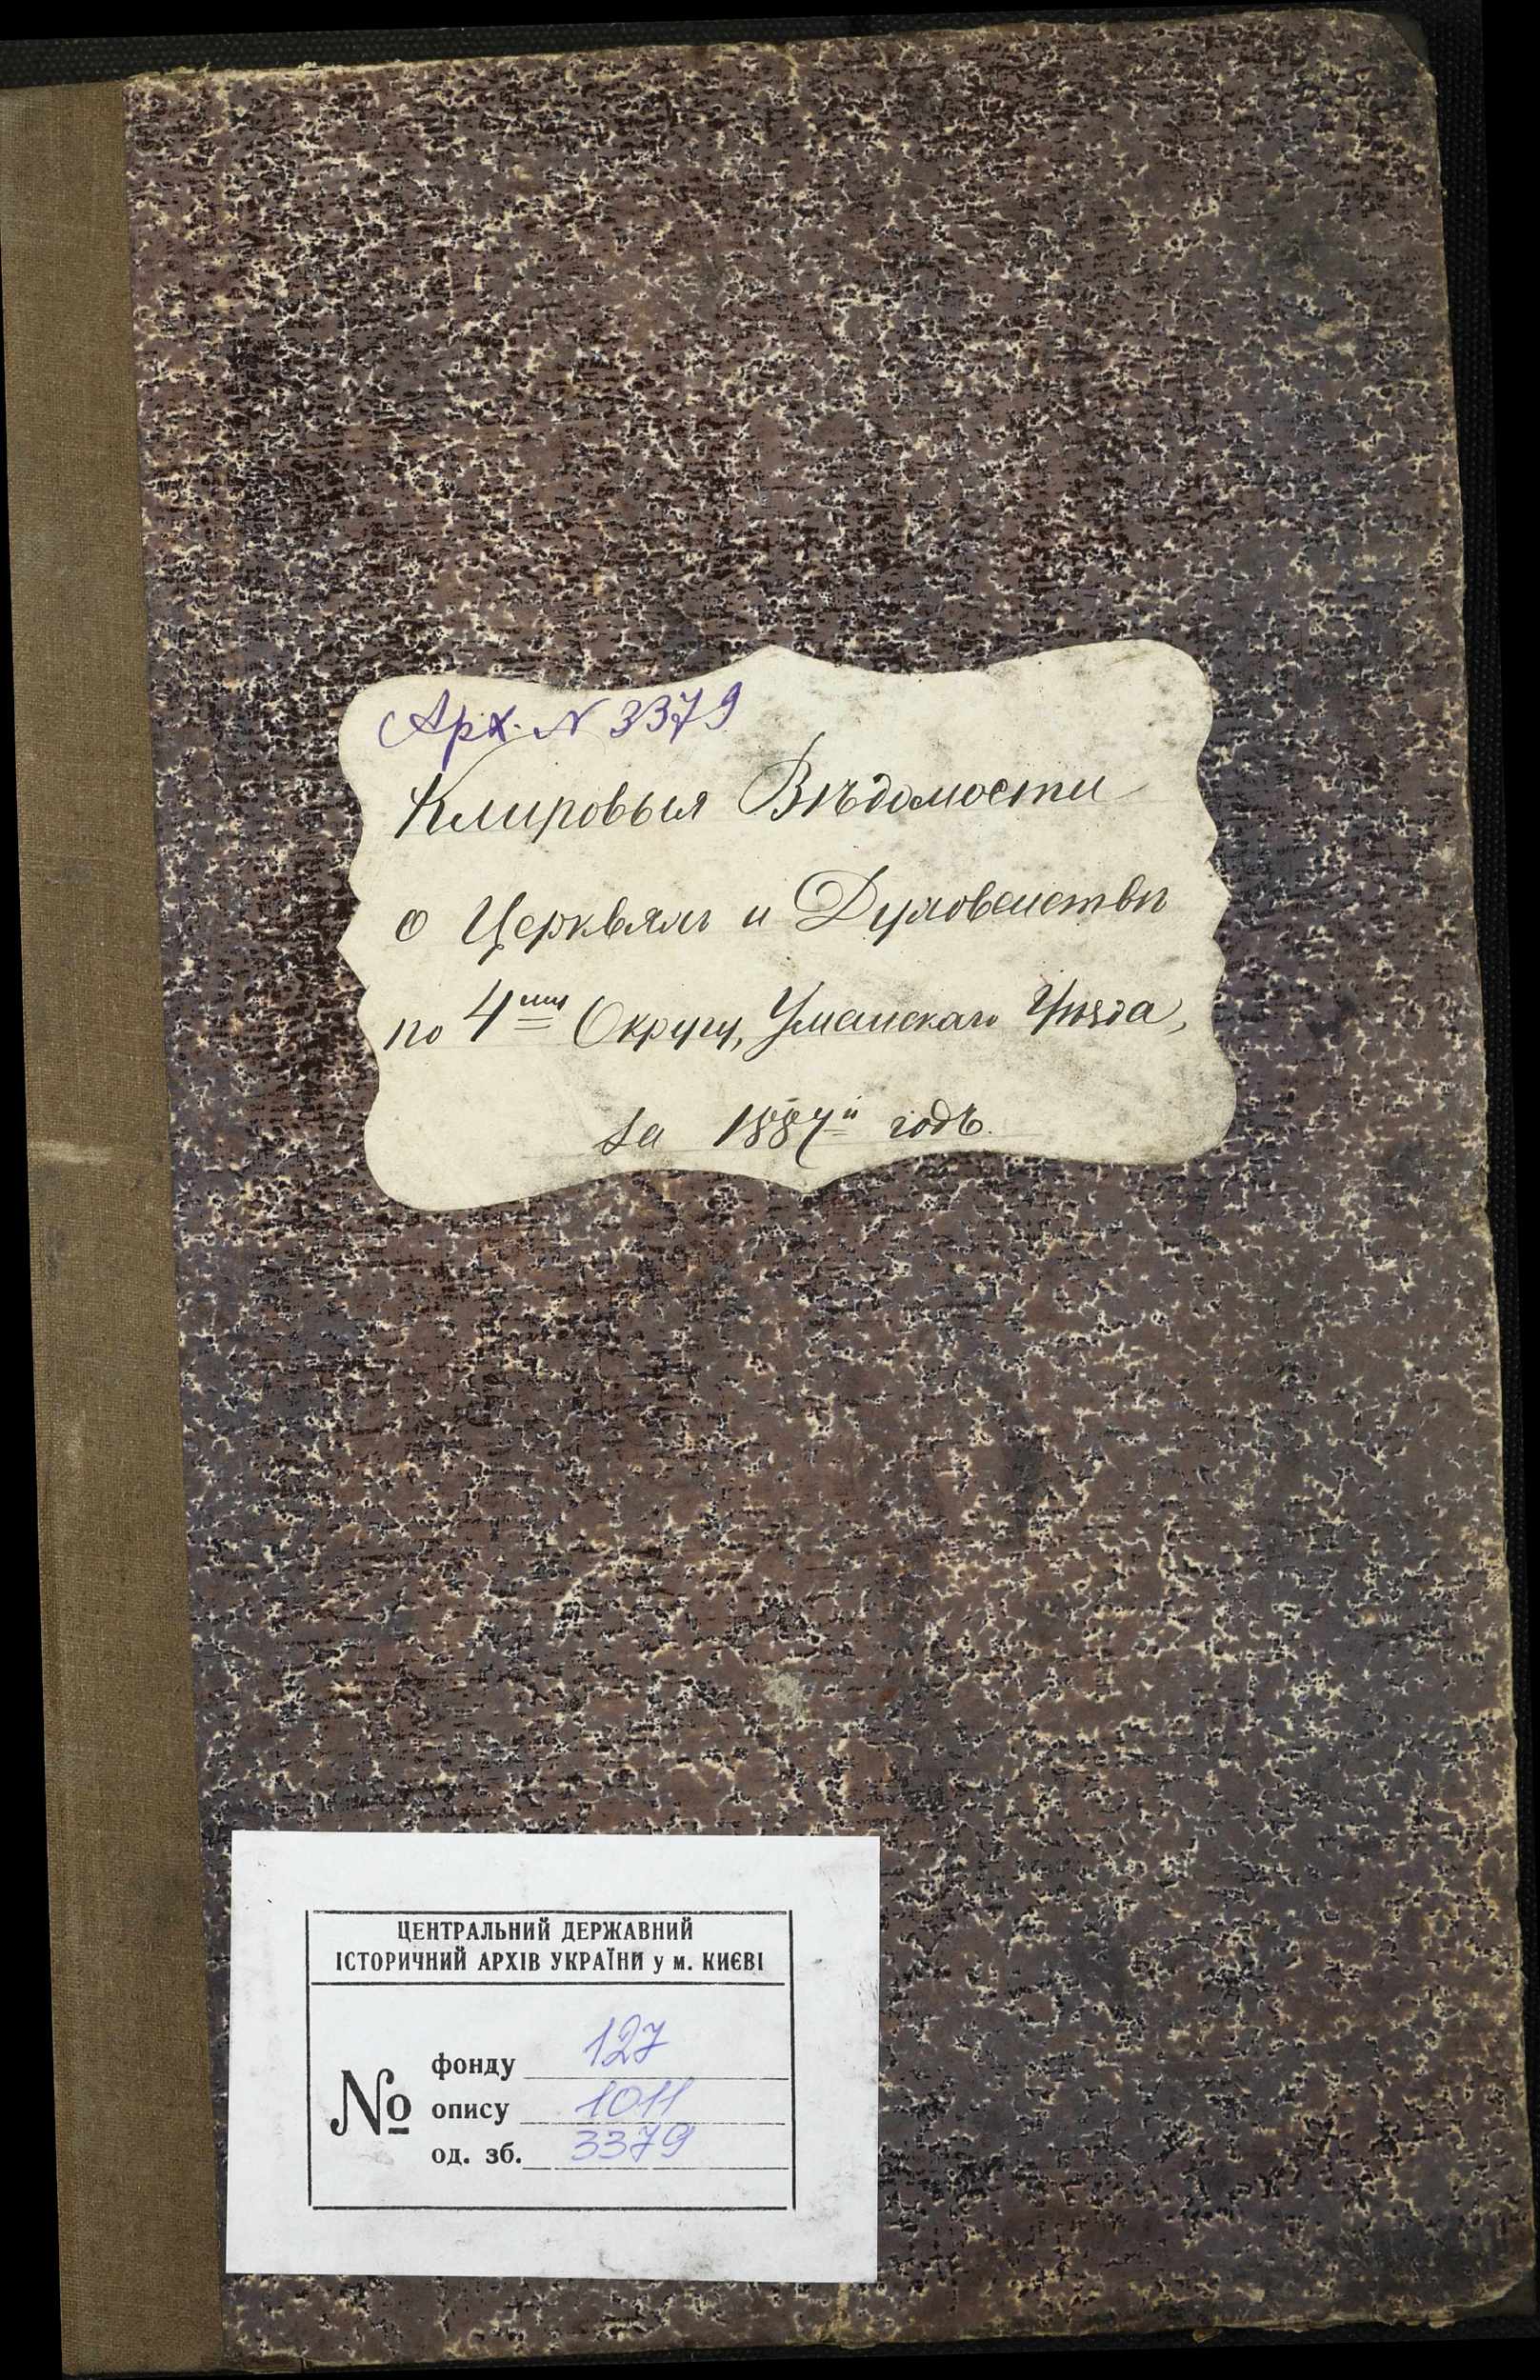 Арх. N 3379
Клировыя Вѣдомости
о Церквяхъ и Духовенствѣ
по 4му Округу, Уманскаго Уѣзда,
за 1887й годъ.
ЦЕНТРАЛЬНИЙ ДЕРЖАВНИЙ
ІСТОРИЧНИЙ АРХІВ УКРАЇНИ у м. КИЄВІ
№
фонду 127
опису 1011
од. зб. 3379